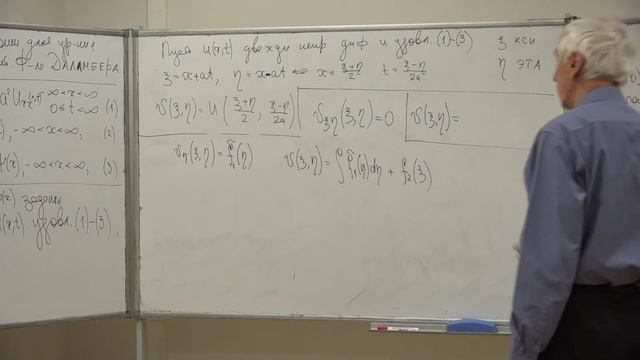 ф-ло Даламбера
-∞<x<∞
0≤t<∞ (1)
), -∞<x<∞, (2)
(x), -∞<x<∞, (3)
задачи
(x,t) удовл. (1)-(3),
Пусть u(x,t) дважды непр диф и удовл. (1)-(3)
ξ=x+at, η=x-at ⇔ x=(ξ+η)/2 t=(ξ-η)/2a
ξ кси
η эта
v(ξ,η)=u((ξ+η)/2, (ξ-η)/2a)
v_ξη(ξ,η)=0
v(ξ,η)=
v_η(ξ,η)=f̃₁(η)
v(ξ,η)=∫f̃₁(η)dη+f₂(ξ)